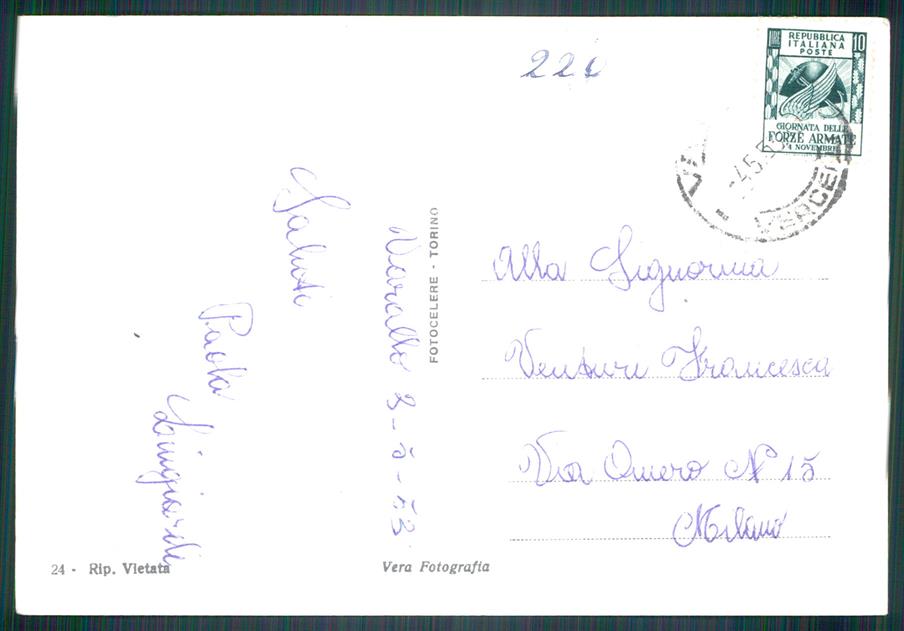 221
LIRE
REPUBBLICA
10
ITALIANA
POSTE
GIORNATA DELLE
FORZE ARMATE
4 NOVEMBRE
4.5.5
VERCEL
Saluti
Paola
Varallo 3-5-53
FOTOCELERE - TORINO
Alla Signorina
Venturi Francesca
Via Omero N° 15
Milano
24 - Rip. Vietata
Vera Fotografia